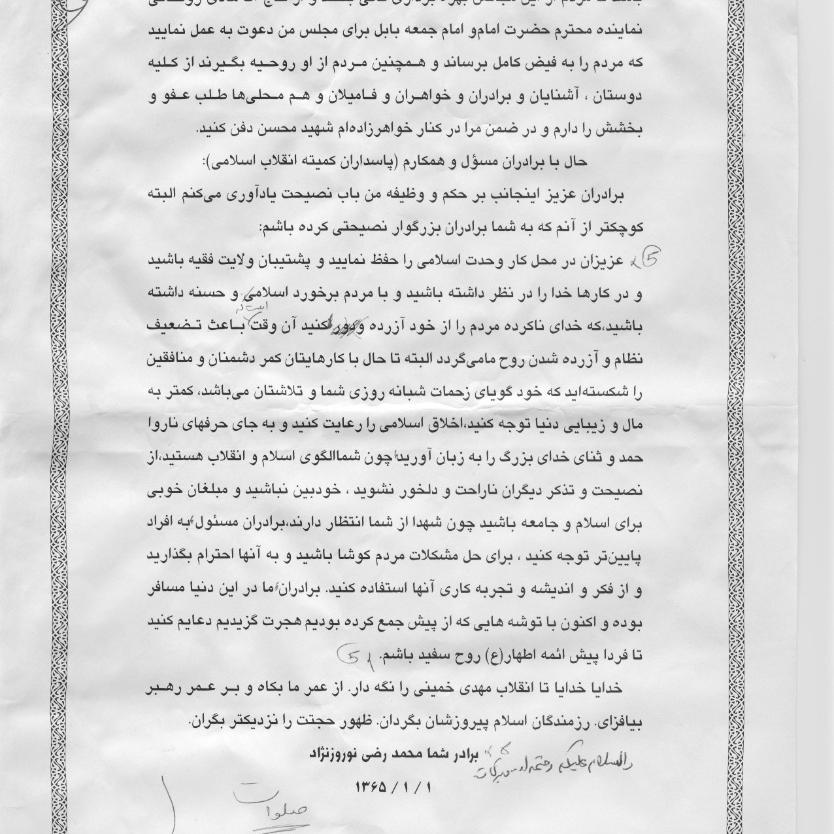 نماینده محترم حضرت امام و امام جمعه بابل برای مجلس من دعوت به عمل نمایید
که مردم را به فیض کامل برساند و همچنین مردم از او روحیه بگیرند از کلیه
دوستان ، آشنایان و برادران و خواهران و فامیلان و هم محلی‌ها طلب عفو و
بخشش را دارم و در ضمن مرا در کنار خواهرزاده‌ام شهید محسن دفن کنید.
حال با برادران مسؤل و همکارم (پاسداران کمیته انقلاب اسلامی):
برادران عزیز اینجانب بر حکم و وظیفه من باب نصیحت یادآوری می‌کنم البته
کوچکتر از آنم که به شما برادران بزرگوار نصیحتی کرده باشم:
5 عزیزان در محل کار وحدت اسلامی را حفظ نمایید و پشتیبان ولایت فقیه باشید
و در کارها خدا را در نظر داشته باشید و با مردم برخورد اسلامی و حسنه داشته
باشید،که خدای ناکرده مردم را از خود آزرده ودور کنید آن وقت باعث تضعیف
نظام و آزرده شدن روح مامی‌گردد البته تا حال با کارهایتان کمر دشمنان و منافقین
را شکسته‌اید که خود گویای زحمات شبانه روزی شما و تلاشتان می‌باشد، کمتر به
مال و زیبایی دنیا توجه کنید،اخلاق اسلامی را رعایت کنید و به جای حرفهای ناروا
حمد و ثنای خدای بزرگ را به زبان آورید چون شماالگوی اسلام و انقلاب هستید،از
نصیحت و تذکر دیگران ناراحت و دلخور نشوید ، خودبین نباشید و مبلغان خوبی
برای اسلام و جامعه باشید چون شهدا از شما انتظار دارند،برادران مسئول به افراد
پایین‌تر توجه کنید ، برای حل مشکلات مردم کوشا باشید و به آنها احترام بگذارید
و از فکر و اندیشه و تجربه کاری آنها استفاده کنید. برادران ما در این دنیا مسافر
بوده و اکنون با توشه هایی که از پیش جمع کرده بودیم هجرت گزیدیم دعایم کنید
تا فردا پیش ائمه اطهار(ع) روح سفید باشم. 5
خدایا خدایا تا انقلاب مهدی خمینی را نگه دار. از عمر ما بکاه و بر عمر رهبر
بیافزای. رزمندگان اسلام پیروزشان بگردان. ظهور حجتت را نزدیکتر بگران.
برادر شما محمد رضی نوروزنژاد
والسلام علیکم و رحمة الله و برکاته
۱ / ۱ / ۱۳۶۵
صلوات